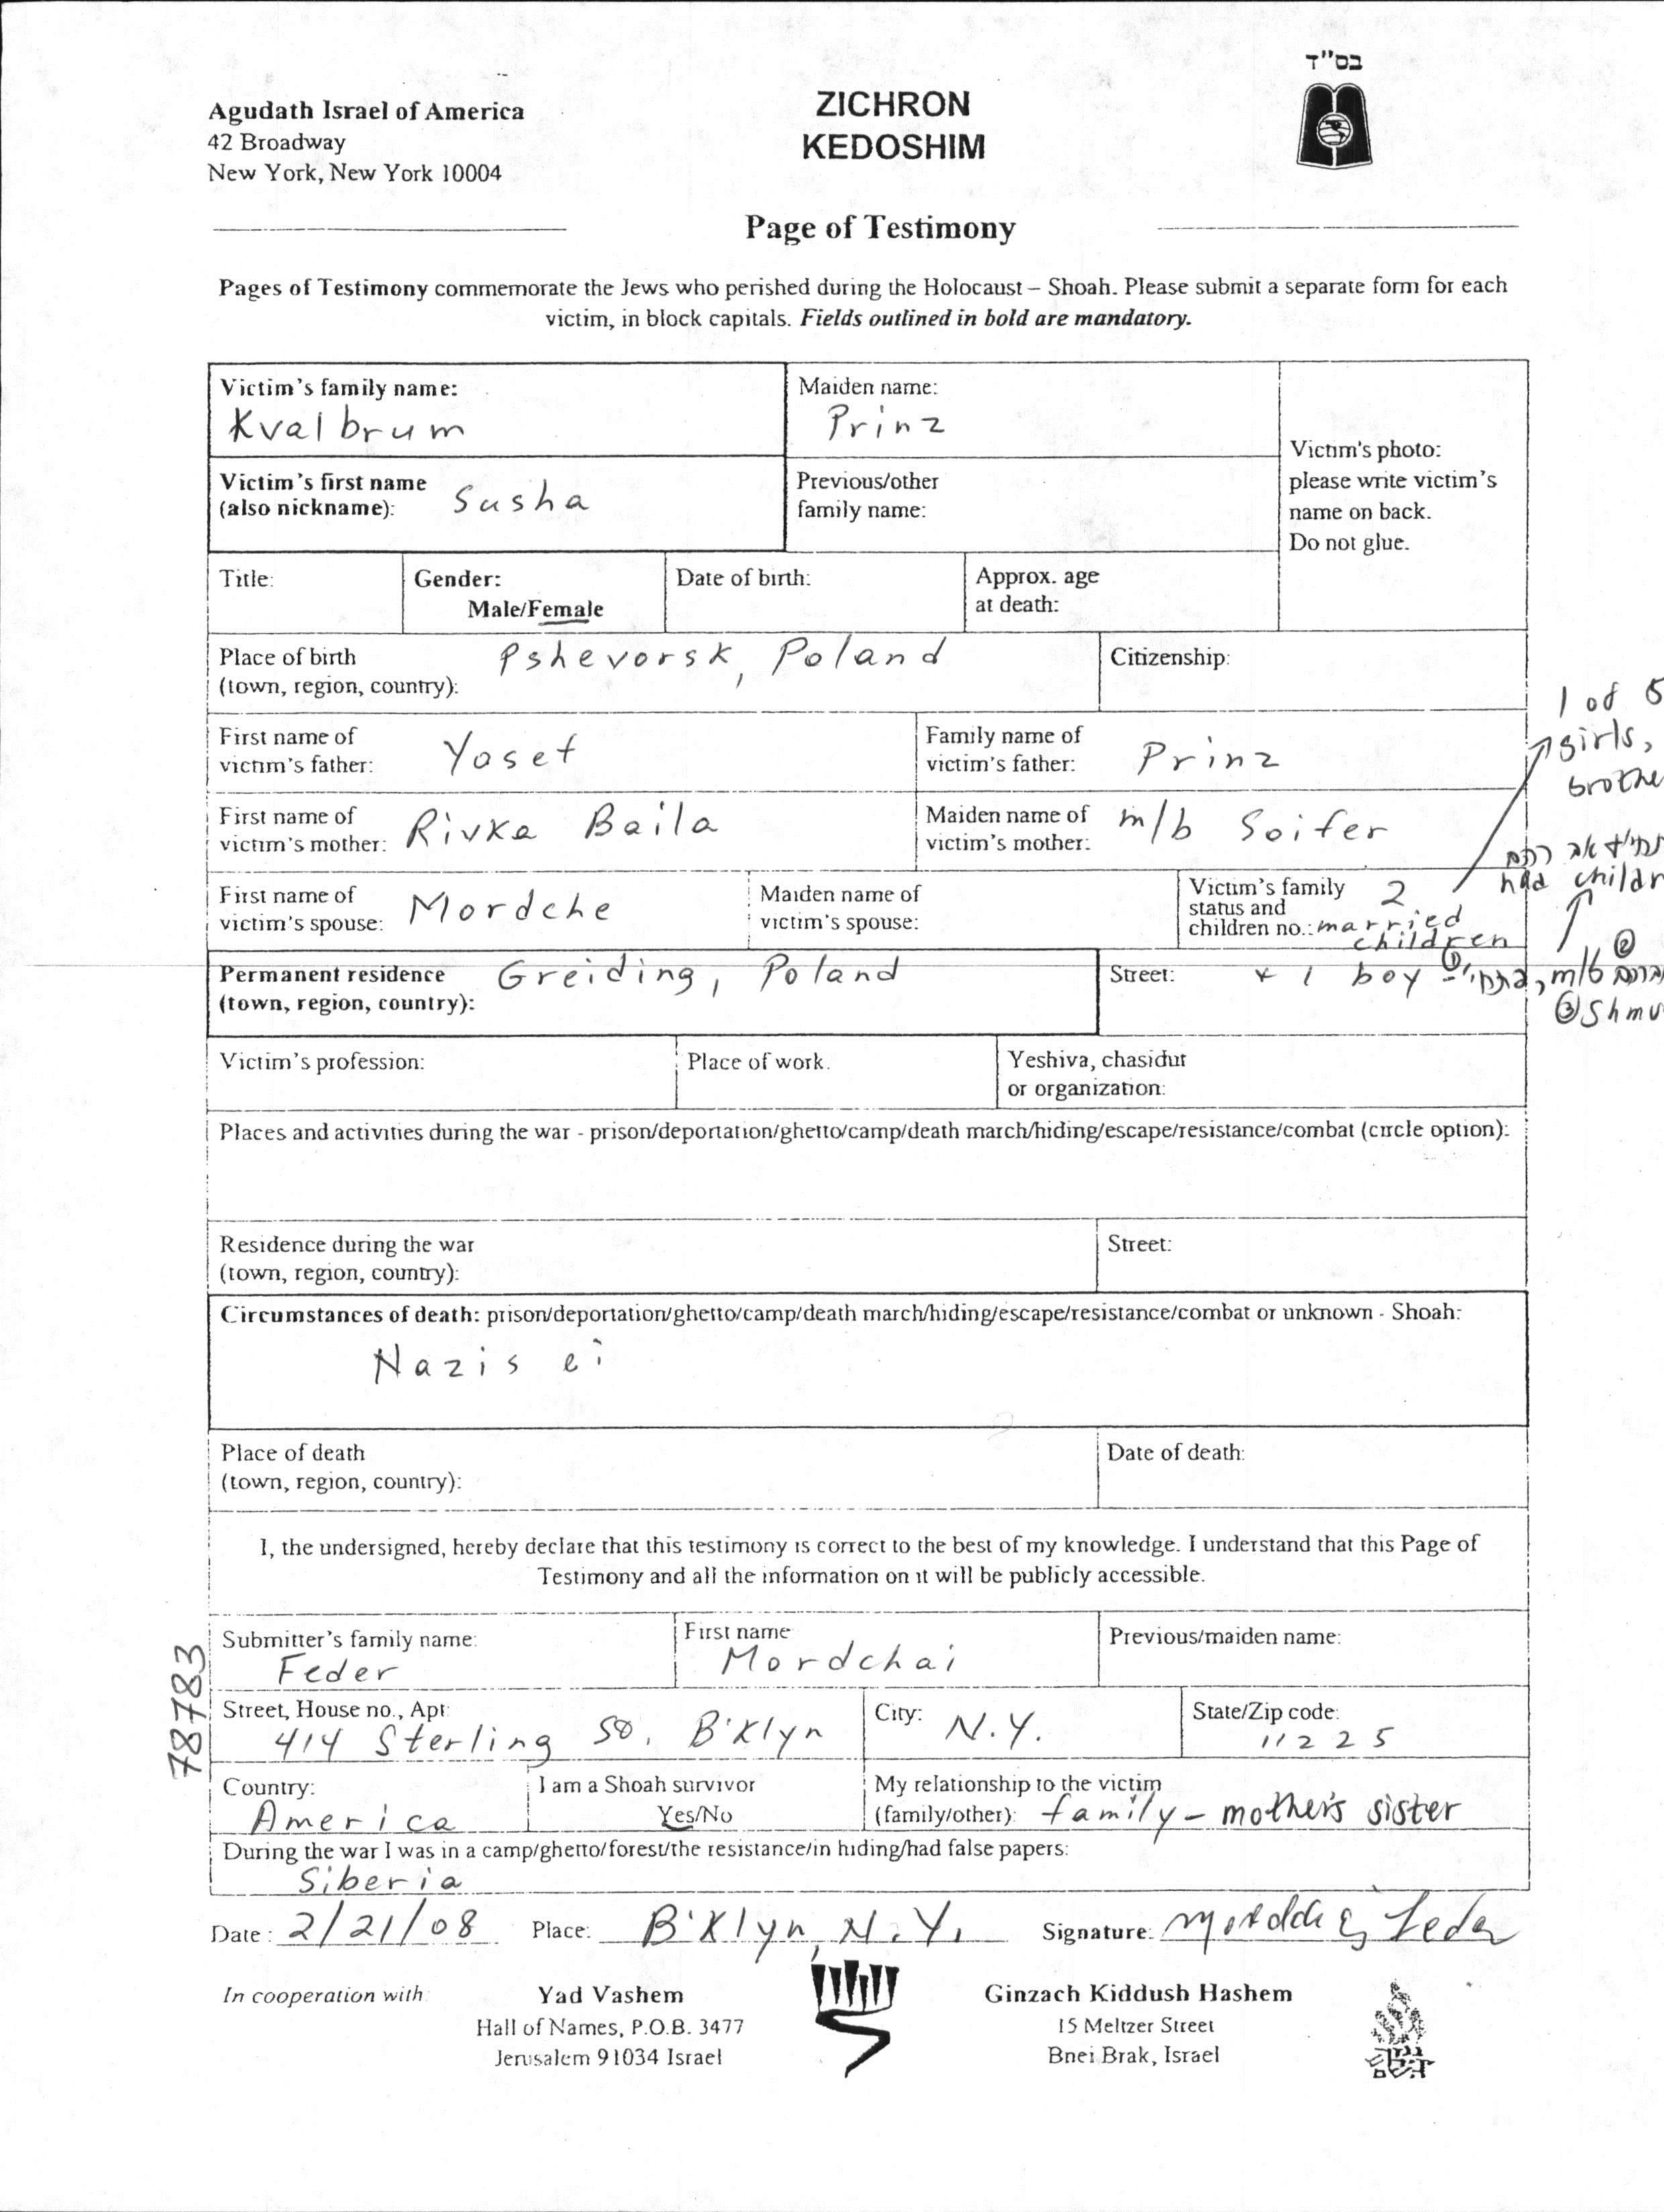 בס"ד
Agudath Israel of America
42 Broadway
New York, New York 10004
ZICHRON
KEDOSHIM
Page of Testimony
Pages of Testimony commemorate the Jews who perished during the Holocaust – Shoah. Please submit a separate form for each
victim, in block capitals. Fields outlined in bold are mandatory.
Victim's family name:
Kvalbrum
Maiden name:
Prinz
Victim's photo:
please write victim's
name on back.
Do not glue.
Victim's first name
(also nickname): Susha
Previous/other
family name:
Title:
Gender:
Male/Female
Date of birth:
Approx. age
at death:
Place of birth
(town, region, country): Pshevorsk, Poland
Citizenship:
1 of 5
girls,
brothe
First name of
victim's father: Yosef
Family name of
victim's father: Prinz
First name of
victim's mother: Rivka Baila
Maiden name of
victim's mother: m/b Soifer
had childr
First name of
victim's spouse: Mordche
Maiden name of
victim's spouse:
Victim's family
status and
children no.: 2
married
children
Permanent residence
(town, region, country): Greiding, Poland
Street: + 1 boy
① m/b ②
③ Shmu
Victim's profession:
Place of work.
Yeshiva, chasidut
or organization:
Places and activities during the war - prison/deportation/ghetto/camp/death march/hiding/escape/resistance/combat (circle option):
Residence during the war
(town, region, country):
Street:
Circumstances of death: prison/deportation/ghetto/camp/death march/hiding/escape/resistance/combat or unknown - Shoah:
Nazis
Place of death
(town, region, country):
Date of death:
I, the undersigned, hereby declare that this testimony is correct to the best of my knowledge. I understand that this Page of
Testimony and all the information on it will be publicly accessible.
78783
Submitter's family name:
Feder
First name
Mordchai
Previous/maiden name:
Street, House no., Apt:
414 Sterling So. B'klyn
City: N.Y.
State/Zip code:
11225
Country:
America
I am a Shoah survivor
Yes/No
My relationship to the victim
(family/other): family - mother's sister
During the war I was in a camp/ghetto/forest/the resistance/in hiding/had false papers:
Siberia
Date: 2/21/08 Place: B'klyn, N.Y. Signature: Feder
In cooperation with:
Yad Vashem
Hall of Names, P.O.B. 3477
Jerusalem 91034 Israel
Ginzach Kiddush Hashem
15 Meltzer Street
Bnei Brak, Israel